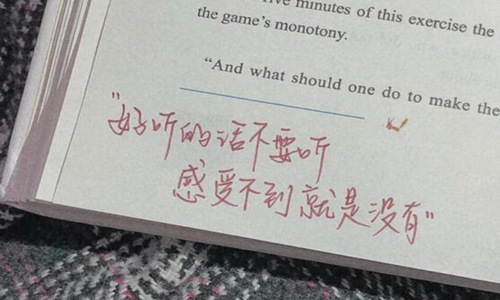 five minutes of this exercise the
the game's monotony.
"And what should one do to make the
"好听的话不要听
感受不到就是没有"